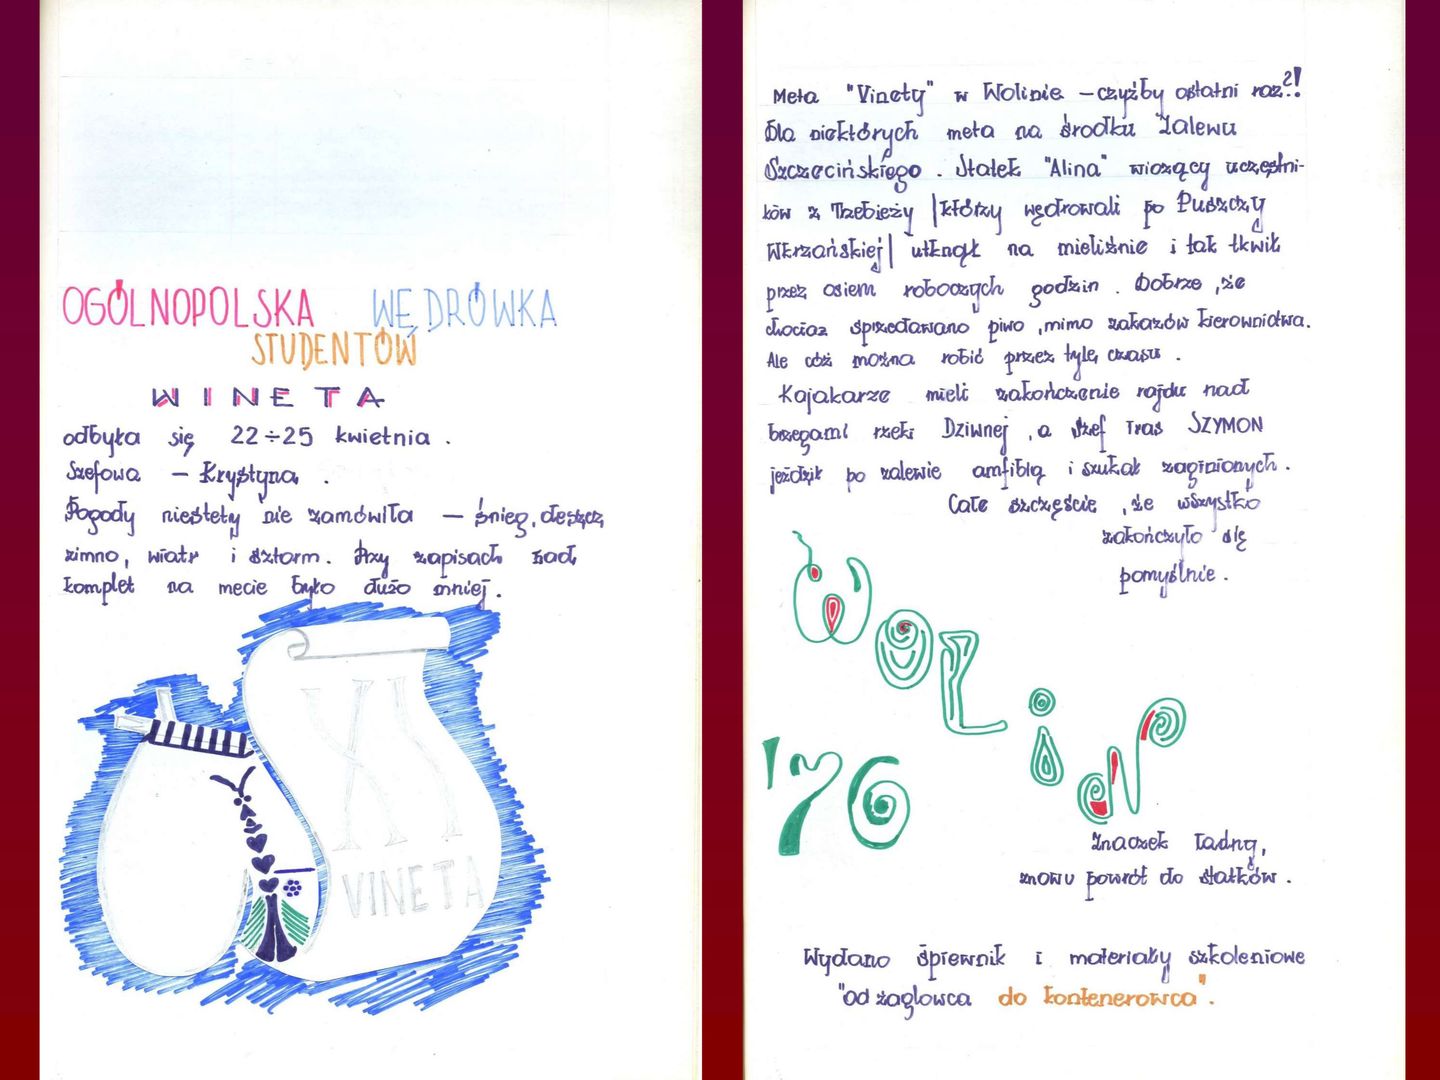 OGÓLNOPOLSKA WĘDRÓWKA
STUDENTÓW
WINETA
odbyła się 22÷25 kwietnia.
Szefowa – Krystyna.
Pogody niestety nie zamówiła – śnieg, deszcz,
zimno, wiatr i sztorm. Przy zapisach nad
komplet na mecie było dużo mniej.
XI
VINETA
Meta "Vinety" w Wolinie – czyżby ostatni raz?!
Dla niektórych meta na środku Zalewu
Szczecińskiego. Statek "Alina" wiozący uczestni-
ków z Trzebieży |którzy wędrowali po Puszczy
Wkrzańskiej| utknął na mieliźnie i tak tkwił
przez osiem roboczych godzin. Dobrze, że
chociaż sprzedawano piwo, mimo zakazów kierownictwa.
Ale cóż można robić przez tyle czasu.
Kajakarze mieli zakończenie rajdu nad
brzegami rzeki Dziwnej, a szef tras SZYMON
jeździł po zalewie amfibią i szukał zaginionych.
Całe szczęście, że wszystko
zakończyło się
pomyślnie.
WOLiN
'76
Znaczek ładny,
znowu powrót do statków.
Wydano śpiewnik i materiały szkoleniowe
"od żaglowca do kontenerowca".